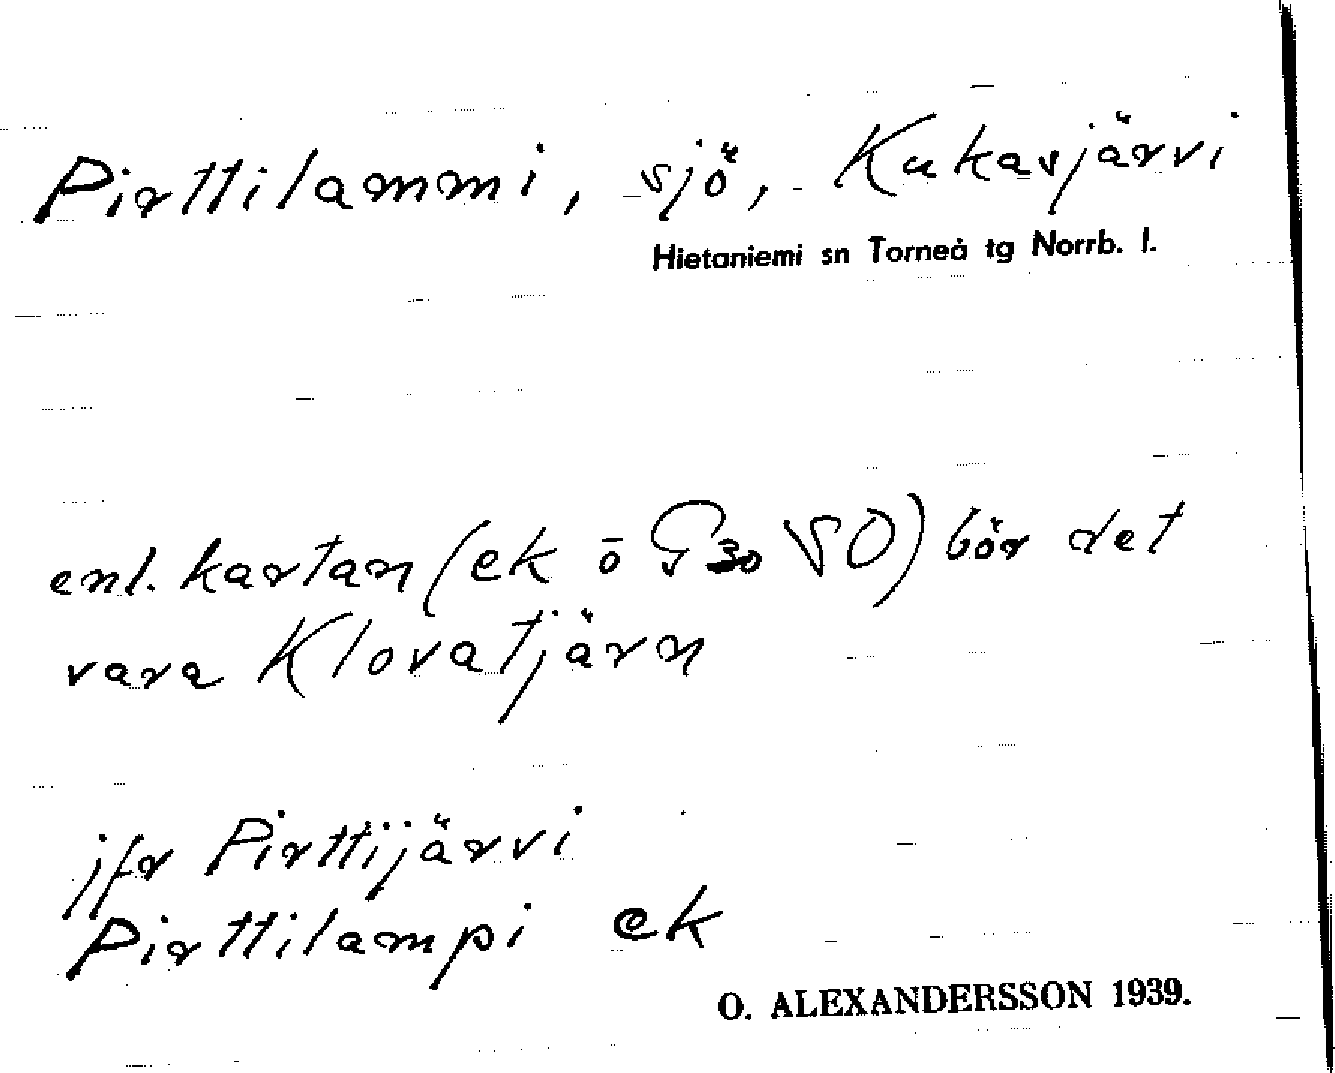 Pirttilammi, sjö, Kukasjärvi
Hietaniemi sn Torneå tg Norrb. l.
enl. kartan (ek ö G30 SO) bör det
vara Klovatjärn
jfr Pirttijärvi
Pirttilampi ek
O. ALEXANDERSSON 1939.